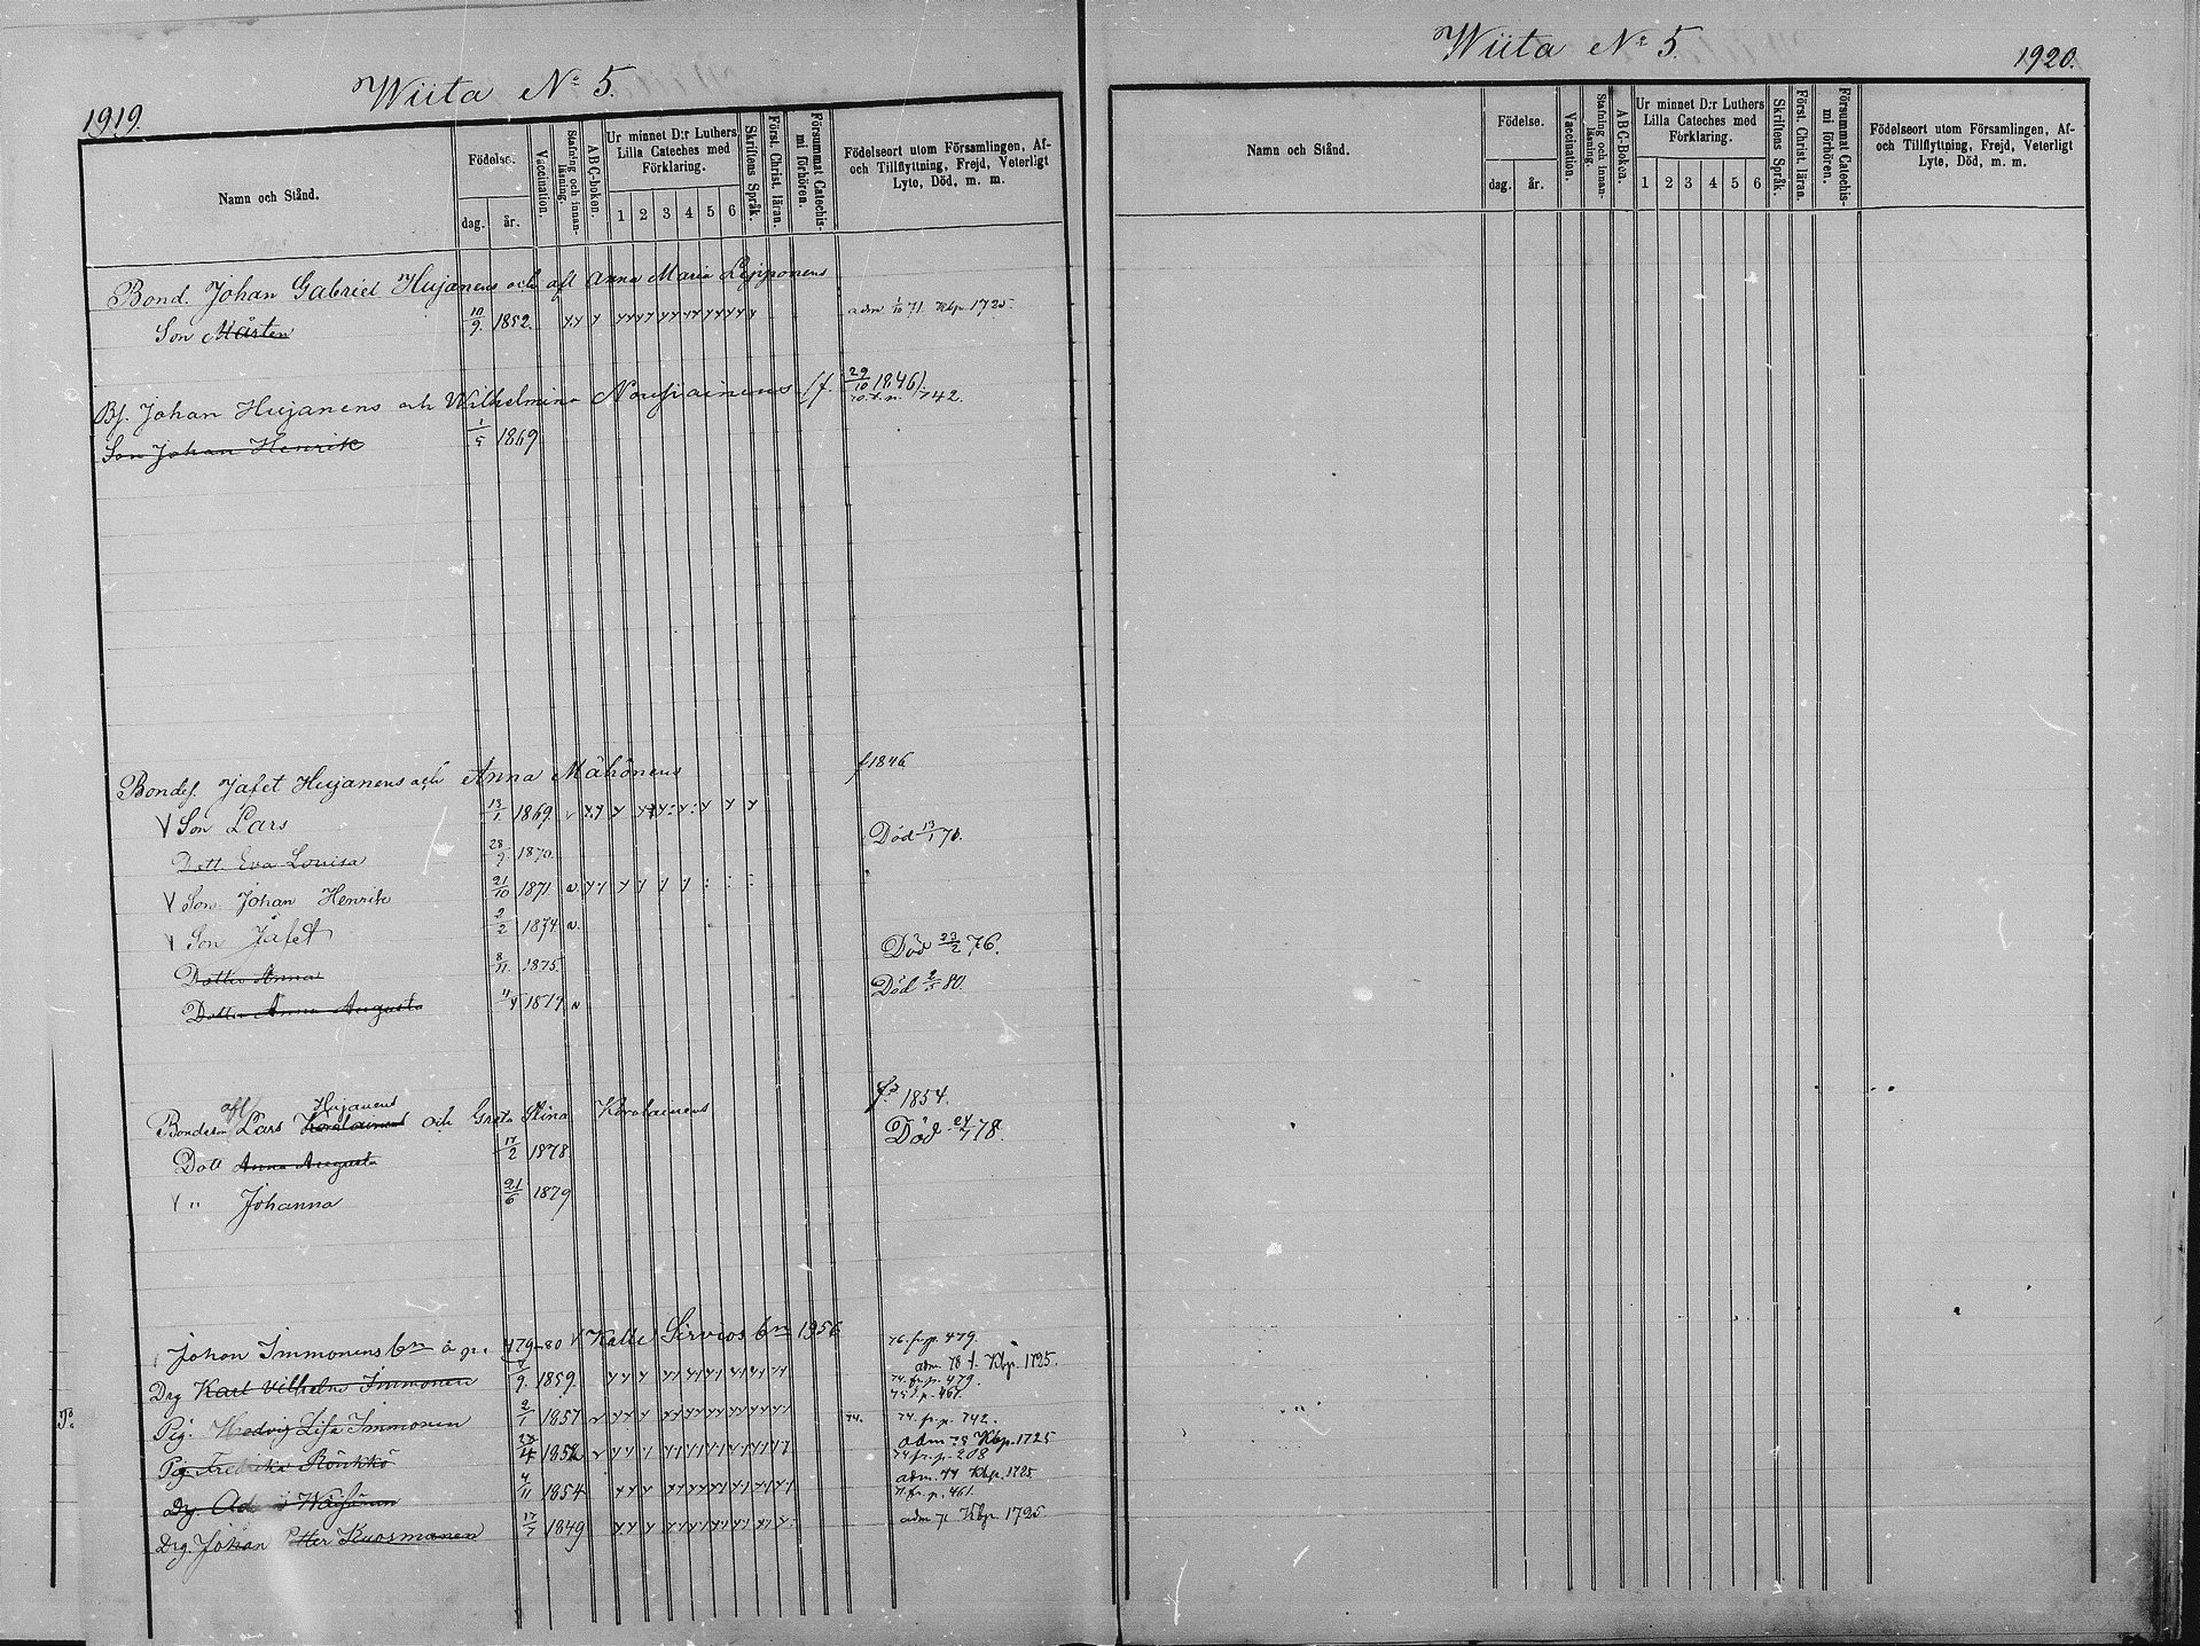 1919.
Wiita No 5.
Namn och Stånd.
Födelse.
dag.
år.
Vaccination.
Stafning och innan-läsning.
ABC-boken.
Ur minnet D:r Luthers Lilla Cateches med Förklaring.
1 2 3 4 5 6
Skriftens Språk.
Först. Christ. läran.
Försummat Catechis-mi förhören.
Födelseort utom Församlingen, Af- och Tillflyttning, Frejd, Veterligt Lyte, Död, m. m.
Bond. Johan Gabriel Hujanens och afl Anna Maria Lipponens
Son Mårten 10/9 1852. adm 1/10 71 Kbp. 1725.
Bs. Johan Hujanens och Wilhelmina Nousiainens (f. 29/10 1846) 742.
Son Johan Henrik 1/5 1869
Bondes. Jafet Hujanens och Anna Mähönens f 1846
Son Lars 13/1 1869.
Dott. Eva Lovisa 28/9 1870. Död 13/1 71.
Son Johan Henrik 21/10 1871
Son Jafet 2/2 1874
Dotter Anna 8/11 1875. Död 23/2 76.
Dotter Anna Augusta 11/4 1879 Död 2/5 80.
Bondeson afl Lars Koralainens Hujanens och Greta Stina Koralainens f. 1854.
Dott Anna Augusta 17/2 1878 Död 24/7 78.
" Johanna 21/6 1879
Johan Immonens bn å p. 479-80 Kalle Sirviös bn 1956 76. fr. p. 479.
Drg Karl Vilhelm Immonen 9. 1859. adm. 78 Kbp. 1725.
74. fr. p. 479.
75 t. p. 461.
Pig. Hedvig Lisa Immonen 2/1 1857 74. 74. fr. p. 742.
adm 75 Kbp. 1725
Pig. Fredrika Röukkö 1858 74 fr. p. 208
adm. 74 Kbp. 1725
Dg. Ad Wäisänen 4/11 1854 71. fr. p. 461.
Drg. Johan Petter Kuosmanen 17/7 1849 adm 71 Kbp. 1725
Wiita No 5.
1920.
Namn och Stånd.
Födelse.
dag.
år.
Vaccination.
Stafning och innan-läsning.
ABC-Boken.
Ur minnet D:r Luthers Lilla Cateches med Förklaring.
1 2 3 4 5 6
Skriftens Språk.
Först. Christ. läran.
Försummat Catechis-mi förhören.
Födelseort utom Församlingen, Af- och Tillflyttning, Frejd, Veterligt Lyte, Död, m. m.